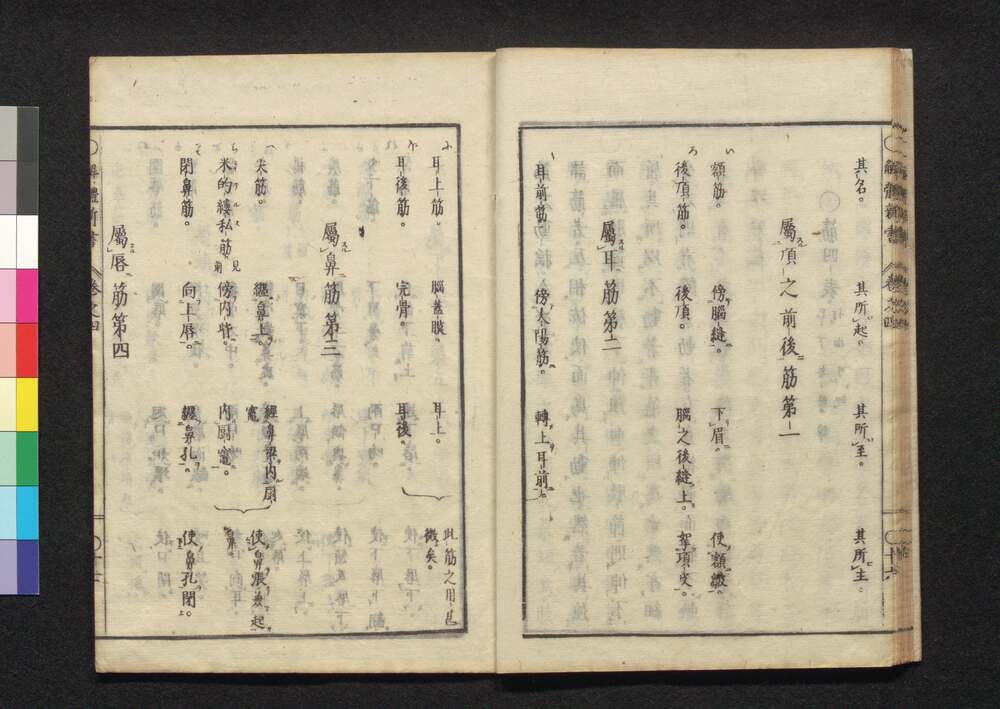 解體新書 卷之四 十六
其名。 其所起。 其所至。 其所主。
屬項之前後筋第一
額筋。 傍腦縫。 下眉。 使額皺。
後頂筋。 後頂。 腦之後縫上。 挈項皮。
屬耳筋第二
耳前筋。 傍太陽筋。 轉上耳前。
耳上筋。 腦蓋膜。 耳上。 此筋之用也微矣。
耳後筋。 完骨。 耳後。
屬鼻筋第三
尖筋。 纏鼻上。 經鼻梁內扇竈。 使鼻張兼起鼻。
米的縷私筋。見前 傍內眥。 內厨竈。
閉鼻筋。 向上唇。 纏鼻孔。 使鼻孔閉。
屬唇筋第四
解體新書 卷之四